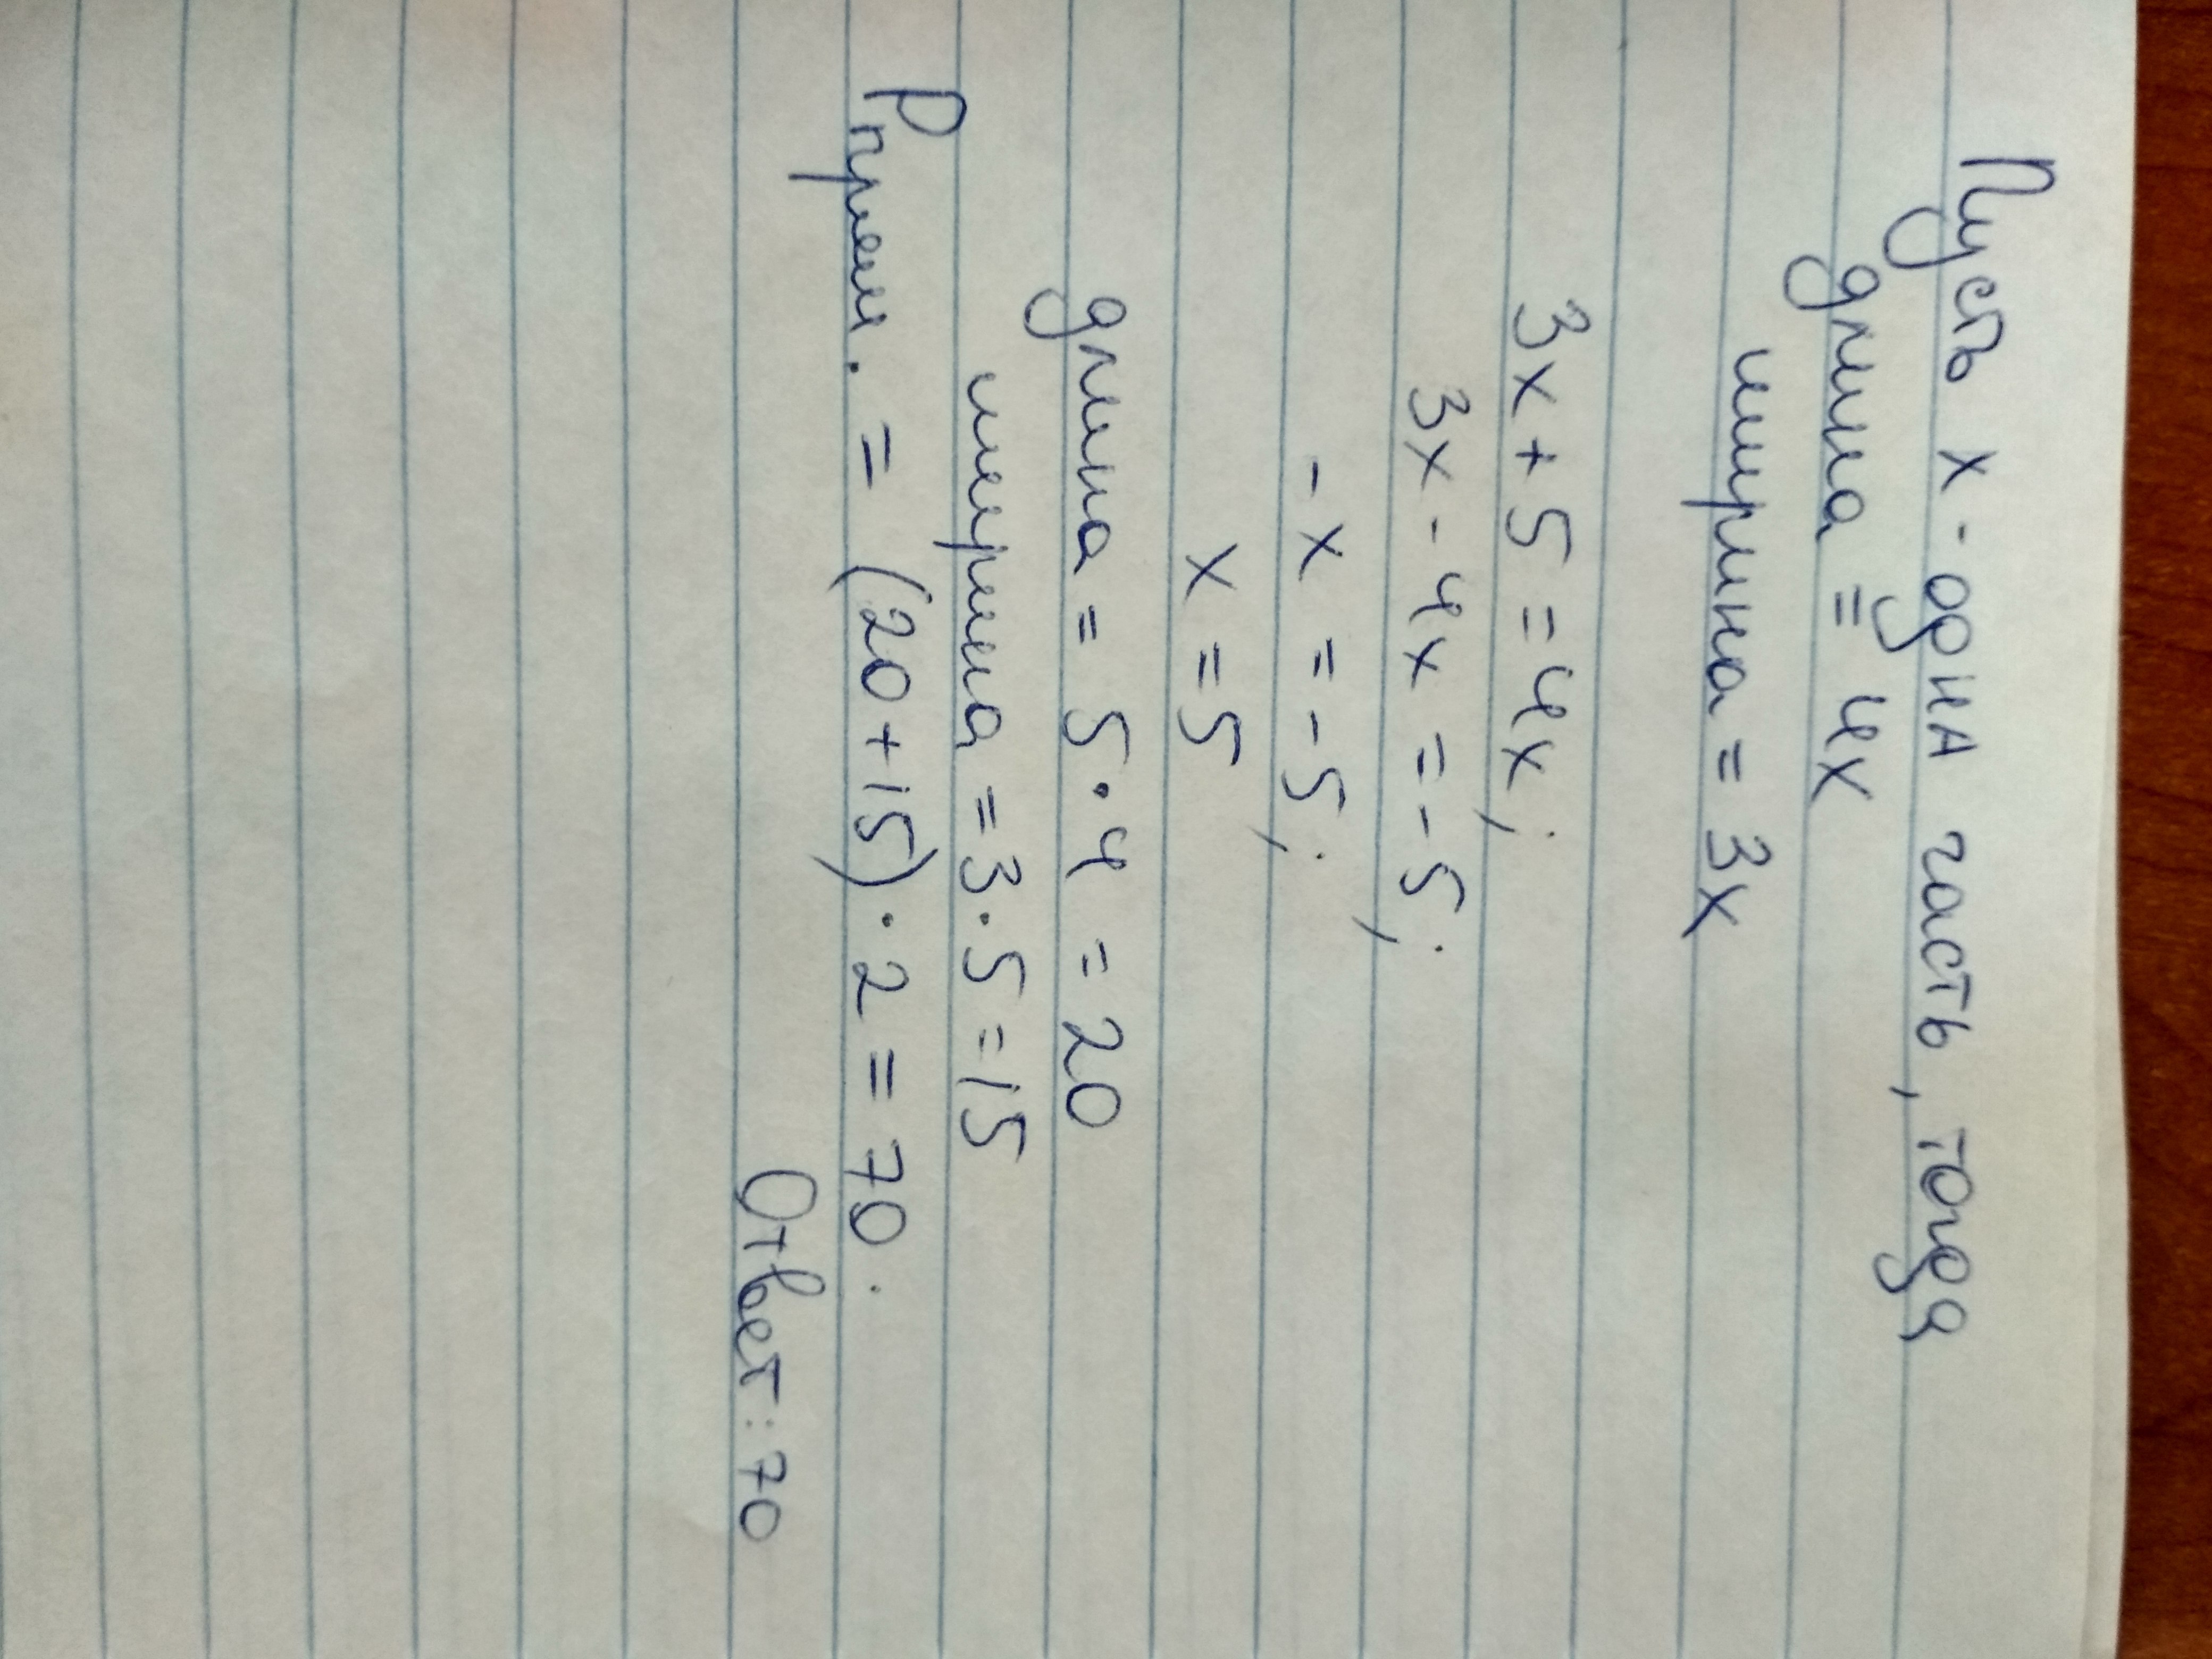 Пусть x - одна часть, тогда
длина = 4x
ширина = 3x
3x + 5 = 4x;
3x - 4x = -5;
-x = -5;
x = 5
длина = 5 · 4 = 20
ширина = 3 · 5 = 15
Pпрям. = (20 + 15) · 2 = 70.
Ответ: 70